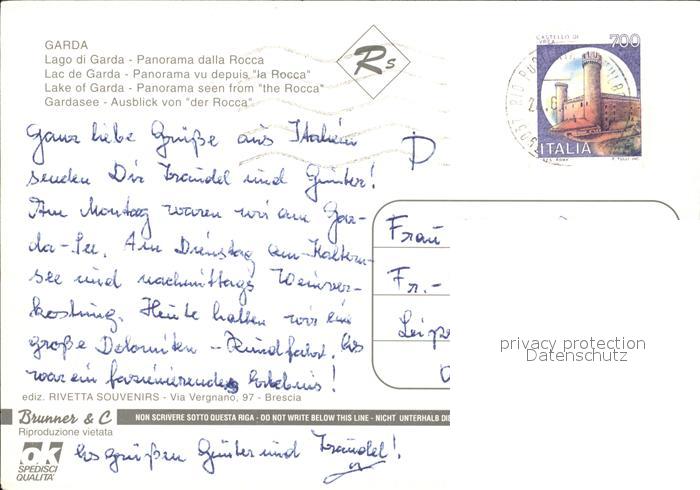 GARDA
Lago di Garda - Panorama dalla Rocca
Lac de Garda - Panorama vu depuis "la Rocca"
Lake of Garda - Panorama seen from "the Rocca"
Gardasee - Ausblick von "der Rocca"
Rs
CASTELLO DI
IVREA
700
ITALIA
I.P.Z.S. ROMA
Ganz liebe Grüße aus Italien
senden Dir Traudel und Günter!
Am Montag waren wir am Gar-
da-See. Am Dienstag am Kalterer-
see und nachmittags Weinver-
kostung. Heute hatten wir ein
große Dolomiten - Rundfahrt. Es
war ein faszinierendes Erlebnis!
D
Frau
Fr.-
Leip
privacy protection
Datenschutz
ediz. RIVETTA SOUVENIRS - Via Vergnano, 97 - Brescia
Brunner & C
NON SCRIVERE SOTTO QUESTA RIGA - DO NOT WRITE BELOW THIS LINE - NICHT UNTERHALB DIE
Riproduzione vietata
ok
SPEDISCI
QUALITA'
Es grüßen Günter und Traudel!